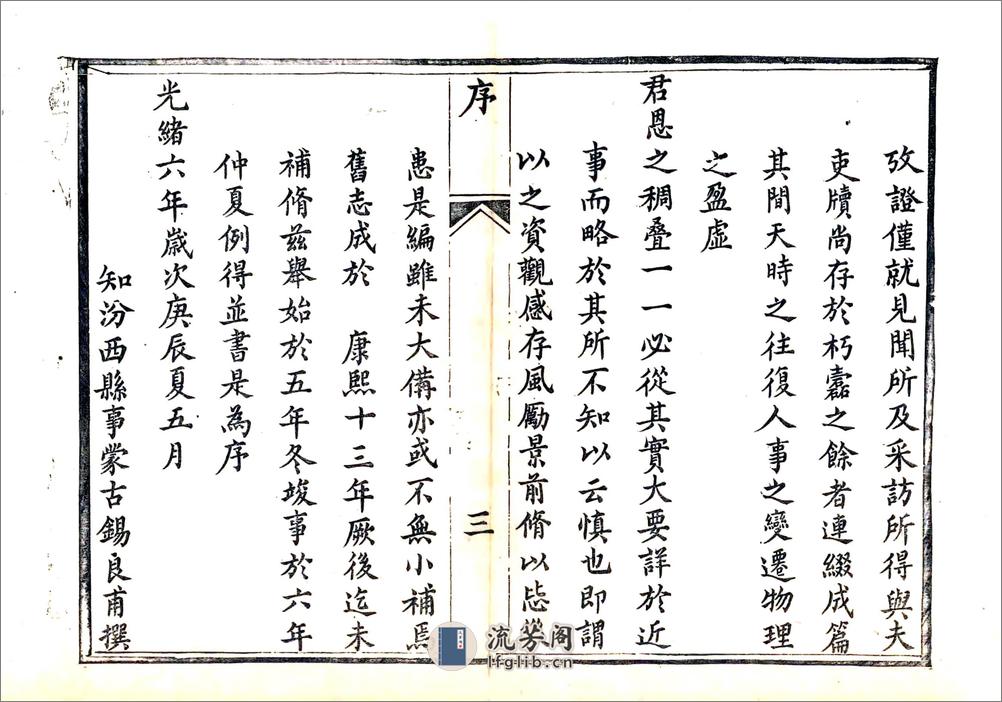 攷證僅就見聞所及采訪所得與夫
吏牘尚存於朽蠹之餘者連綴成篇
其間天時之往復人事之變遷物理
之盈虛
君恩之稠疊一一必從其實大要詳於近
事而略於其所不知以云慎也即謂
以之資觀感存風勵景前脩以毖
序
三
患是編雖未大備亦或不無小補焉
舊志成於 康熙十三年厥後迄未
補脩茲舉始於五年冬竣事於六年
仲夏例得並書是為序
光緒六年歲次庚辰夏五月
知汾西縣事蒙古錫良甫撰
流芳阁
lfglib.cn